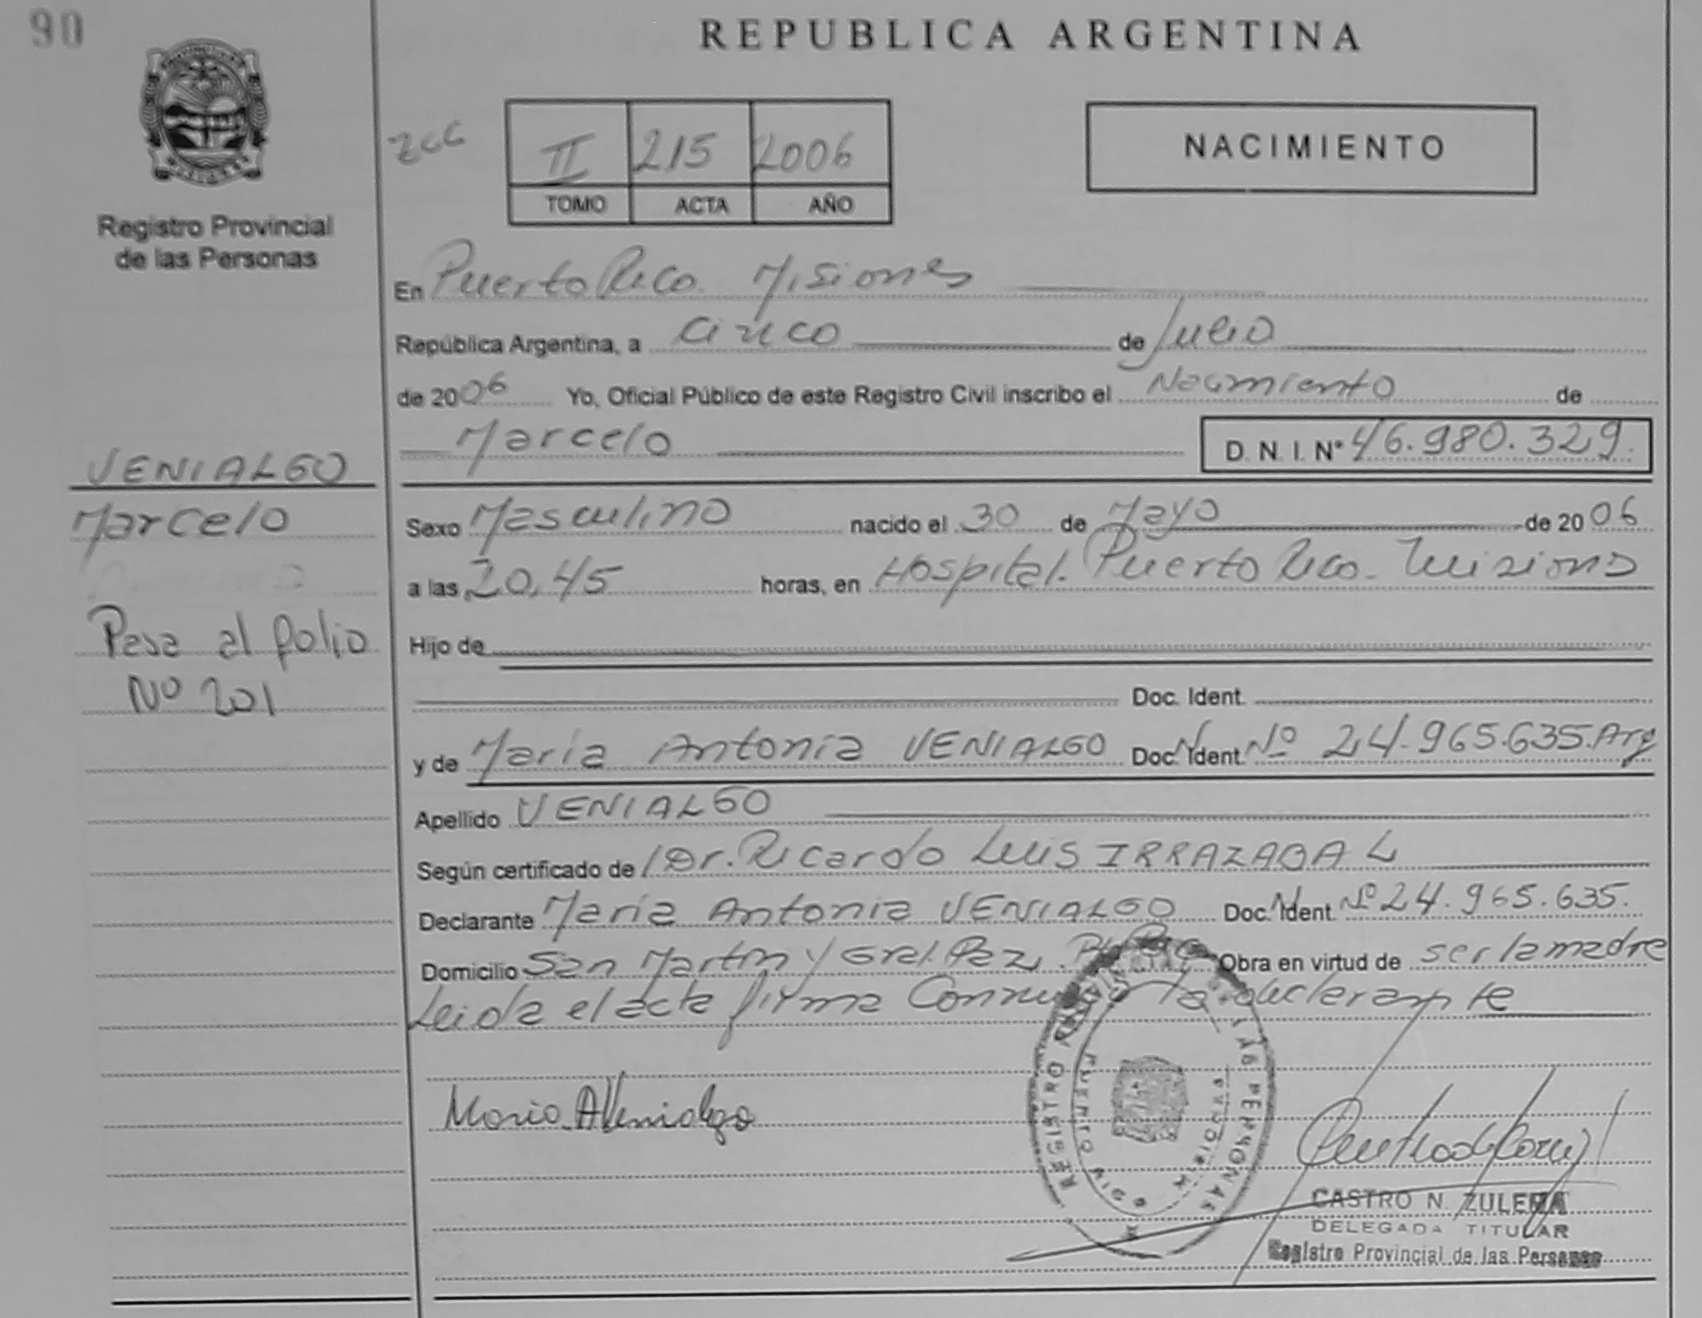 90
REPUBLICA ARGENTINA
Registro Provincial
de las Personas
II 215 2006
TOMO ACTA AÑO
NACIMIENTO
En Puerto Rico Misiones
República Argentina, a cinco de Julio
de 2006 Yo, Oficial Público de este Registro Civil inscribo el Nacimiento de
Marcelo D. N. I. Nº 46.980.329.
VENIALGO
Marcelo
Pasa al folio
Nº 201
Sexo Masculino nacido el 30 de Mayo de 2006
a las 20,45 horas, en Hospital. Puerto Rico. Misiones
Hijo de
Doc. Ident.
y de María Antonia VENIALGO Doc. Ident. Nº 24.965.635. Arg
Apellido VENIALGO
Según certificado de Dr. Ricardo Luis
Declarante María Antonia VENIALGO Doc. Ident. Nº 24.965.635.
Domicilio San Martín y Gral. Paz, Obra en virtud de ser la madre
Leida el acta firma Conmigo la declarante
Maria A Venialgo
REGISTRO LAS PERSONAS
PUERTO RICO MISIONES
CASTRO N. ZULEMA
DELEGADA TITULAR
Registro Provincial de las Personas